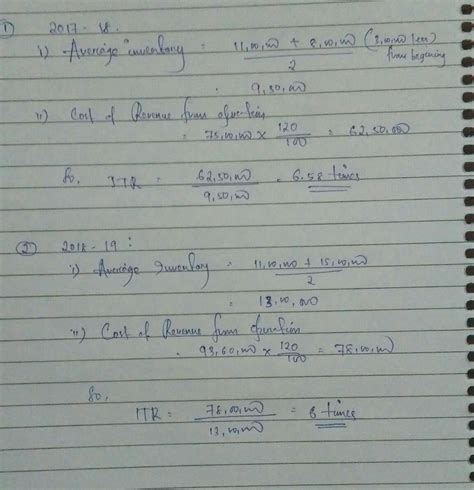 ① 2017-18
i) Average inventory = 11,00,000 + 8,00,000 (3,00,000 less from begining)
2
= 9,50,000
ii) Cost of Revenue from operation
= 75,00,000 × 120/100 = 62,50,000
So, ITR = 62,50,000 / 9,50,000 = 6.58 times
② 2018-19 :
i) Average Inventory = 11,00,000 + 15,00,000
2
= 13,00,000
ii) Cost of Revenue from operation
= 93,60,000 × 120/100 = 78,00,000
So,
ITR = 78,00,000 / 13,00,000 = 6 times